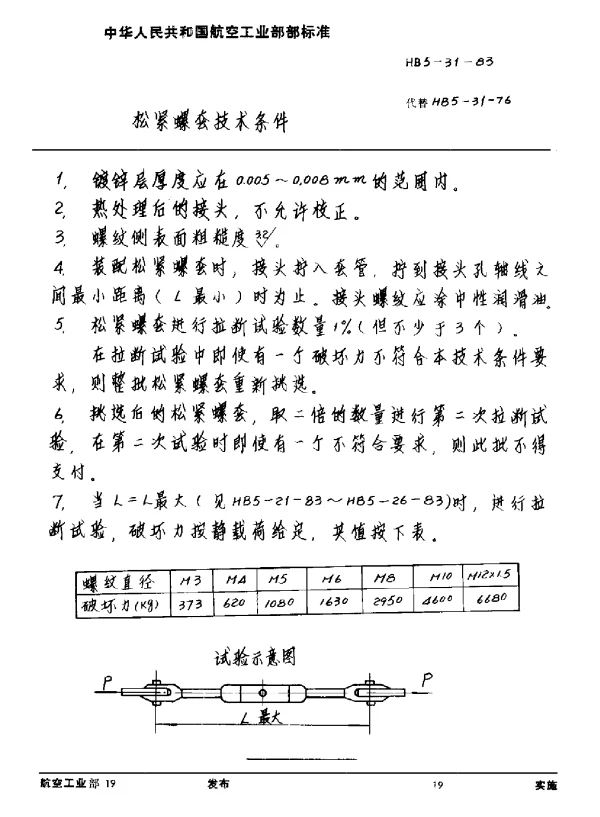 中华人民共和国航空工业部部标准
HB5-31-83
代替HB5-31-76
松紧螺套技术条件
1. 镀锌层厚度应在0.005～0.008mm的范围内。
2. 热处理后的接头，不允许校正。
3. 螺纹侧表面粗糙度3.2/。
4. 装配松紧螺套时，接头拧入套管，拧到接头孔轴线之
间最小距离（L最小）时为止。接头螺纹应涂中性润滑油。
5. 松紧螺套进行拉断试验数量1%（但不少于3个）。
在拉断试验中即使有一个破坏力不符合本技术条件要
求，则整批松紧螺套重新挑选。
6. 挑选后的松紧螺套，取二倍的数量进行第二次拉断试
验，在第二次试验时即使有一个不符合要求，则此批不得
支付。
7. 当L=L最大（见HB5-21-83～HB5-26-83)时，进行拉
断试验，破坏力按静载荷给定，其值按下表。
螺纹直径 M3 M4 M5 M6 M8 M10 M12x1.5
破坏力(Kg) 373 620 1080 1630 2950 4600 6680
试验示意图
P P
L最大
航空工业部 19 发布 19 实施